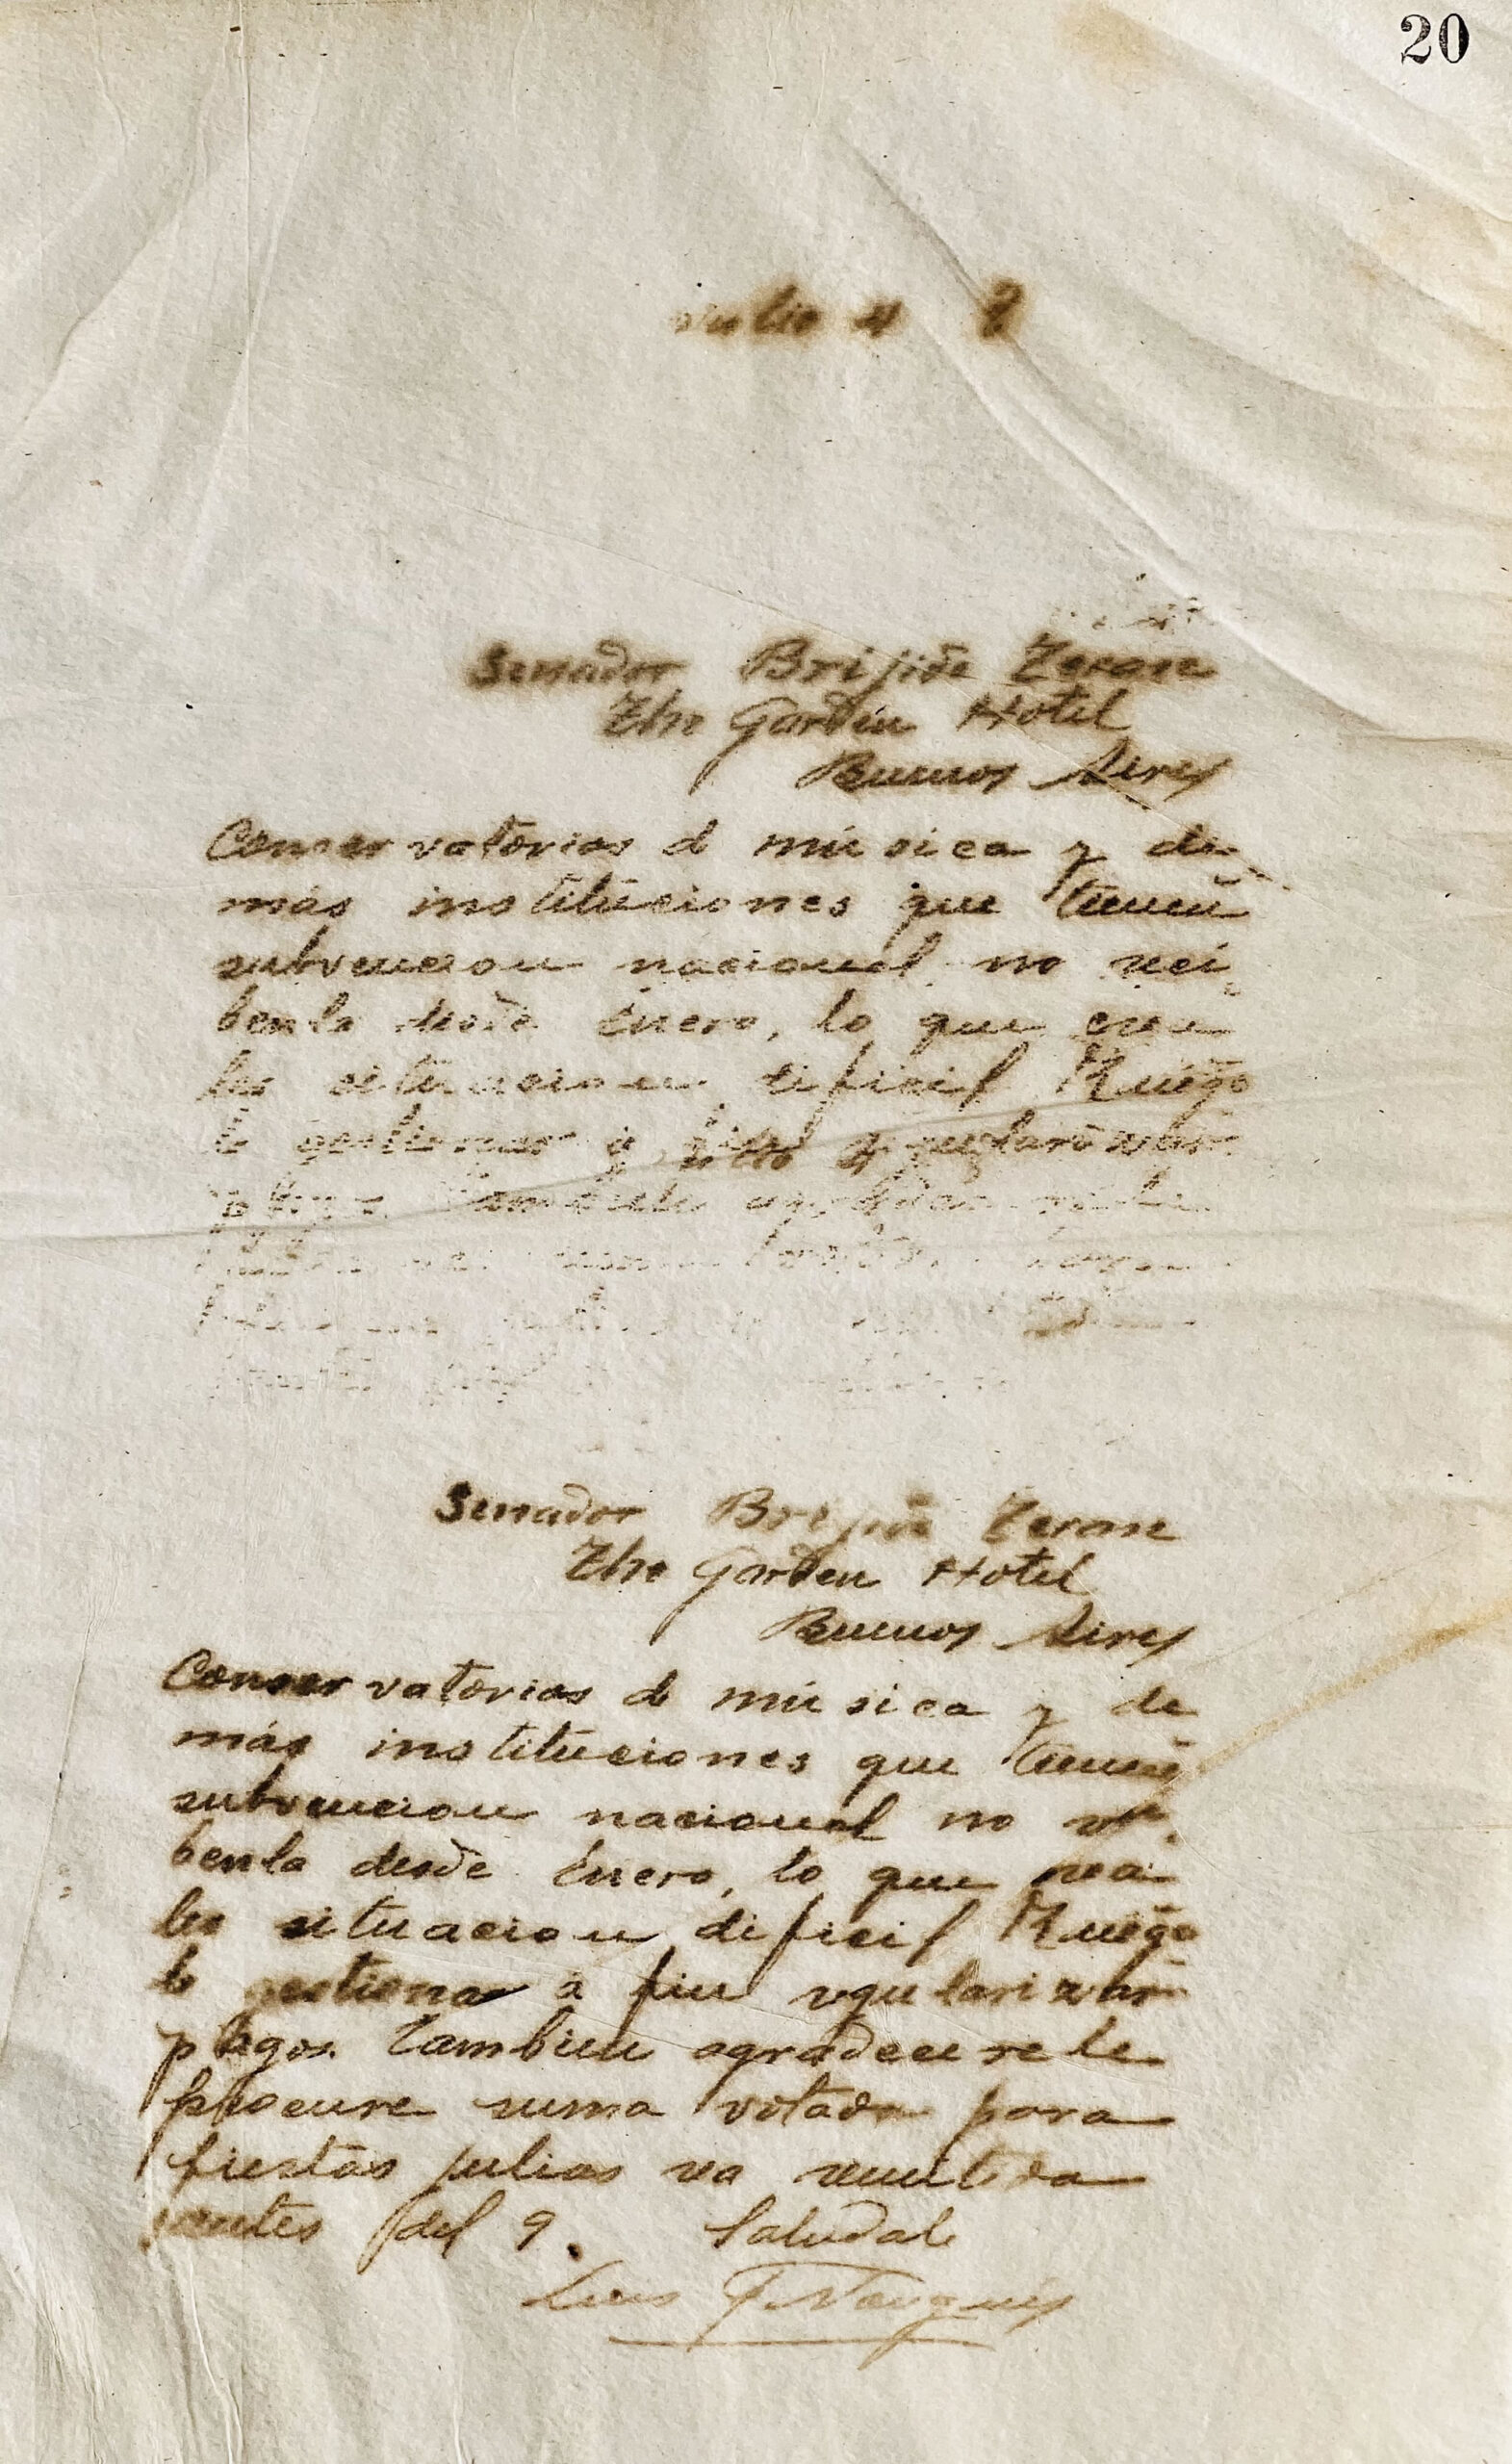 20
Julio 4 8
Senador Brijido Teran
The Garden Hotel
Buenos Aires
Conservatorios d música y de
más instituciones que tienen
subvencion nacional no reci
benla desde Enero, lo que crea
les situacion dificil Ruego
le gestionar á
Tambien
Senador Brijido Teran
The Garden Hotel
Buenos Aires
Conservatorios de música y de
más instituciones que tienen
subvencion nacional no reci
benla desde Enero, lo que crea
les situacion dificil Ruego
le gestionar á fin regularizar
pagos. Tambien agradecerele
procure suma votada para
fiestas julias sea remitida
antes del 9. Saludale
Luis F Nougués